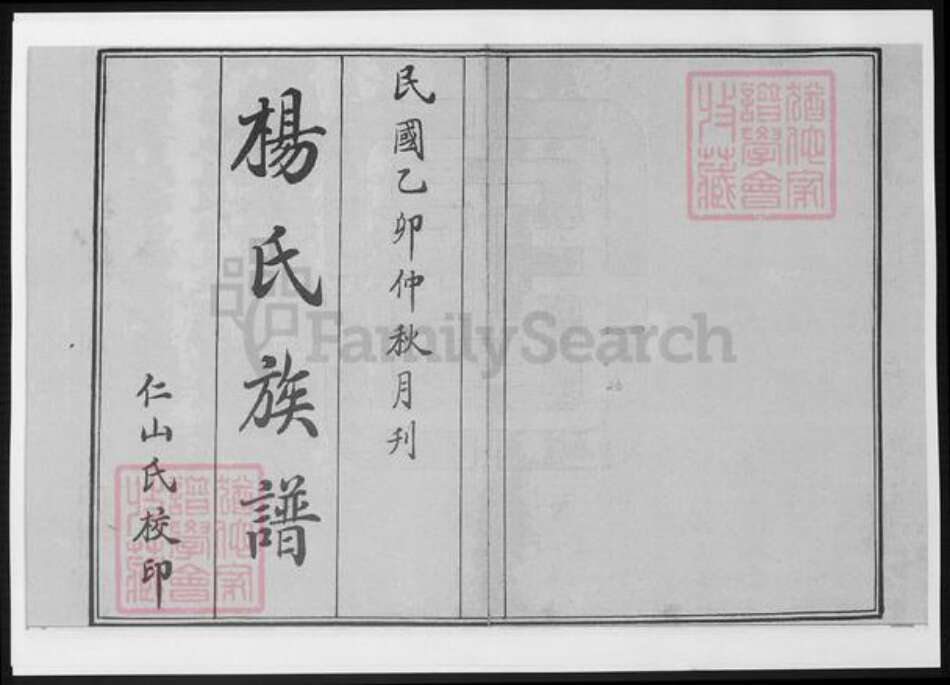 民國乙卯仲秋月刊
楊氏族譜
仁山氏校印
猶他家
譜學會
收藏
猶他家
譜學會
收藏
FamilySearch